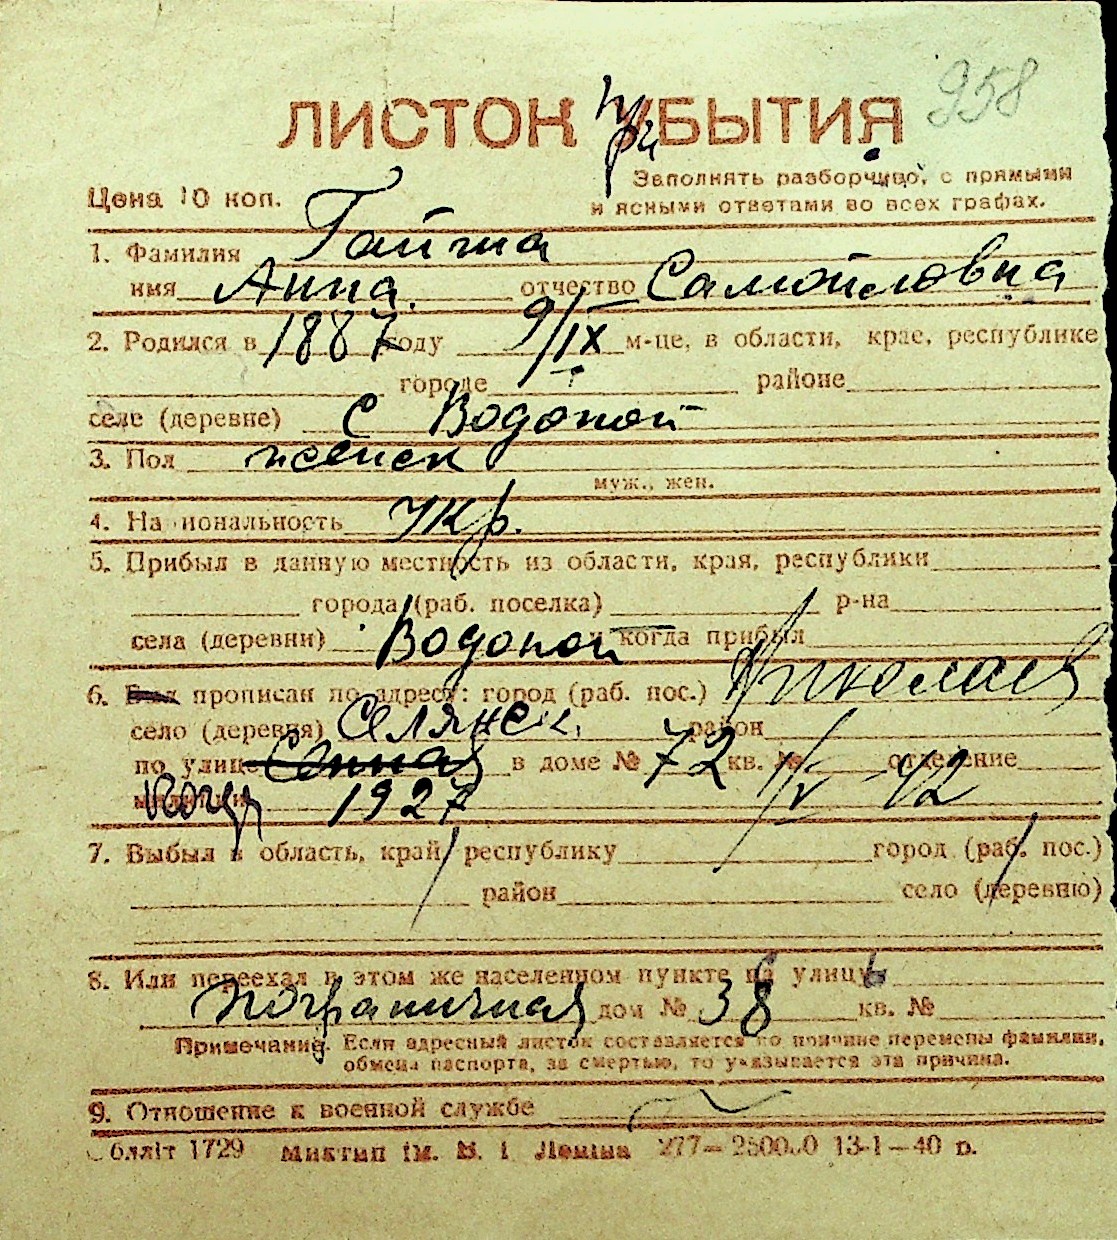 958
ЛИСТОК Прибытия
Цена 10 коп.
Заполнять разборчиво, с прямыми
и ясными ответами во всех графах.
1. Фамилия
имя Анна. отчество Самойловна
2. Родился в 1887 году 9/IX м-це, в области, крае, республике
городе районе
селе (деревне) с Водопой
3. Пол женск
муж., жен.
4. Национальность укр.
5. Прибыл в данную местность из области, края, республики
города (раб. поселка) р-на
села (деревни) Водопой и когда прибыл
6. Был прописан по адресу: город (раб. пос.) Николаев
село (деревня) Селянск. район
по улице Сенная в доме № 72 кв. № отделение
милиции когда 1927 1/V-42
7. Выбыл в область, край, республику город (раб. пос.)
район село (деревню)
8. Или переехал в этом же населенном пункте на улицу
Пограничная дом № 38 кв. №
Примечание. Если адресный листок составляется по причине перемены фамилии,
обмена паспорта, за смертью, то указывается эта причина.
9. Отношение к военной службе
Обліт 1729 Миктип ім. В. І. Леніна 277— 13-1—40 р.